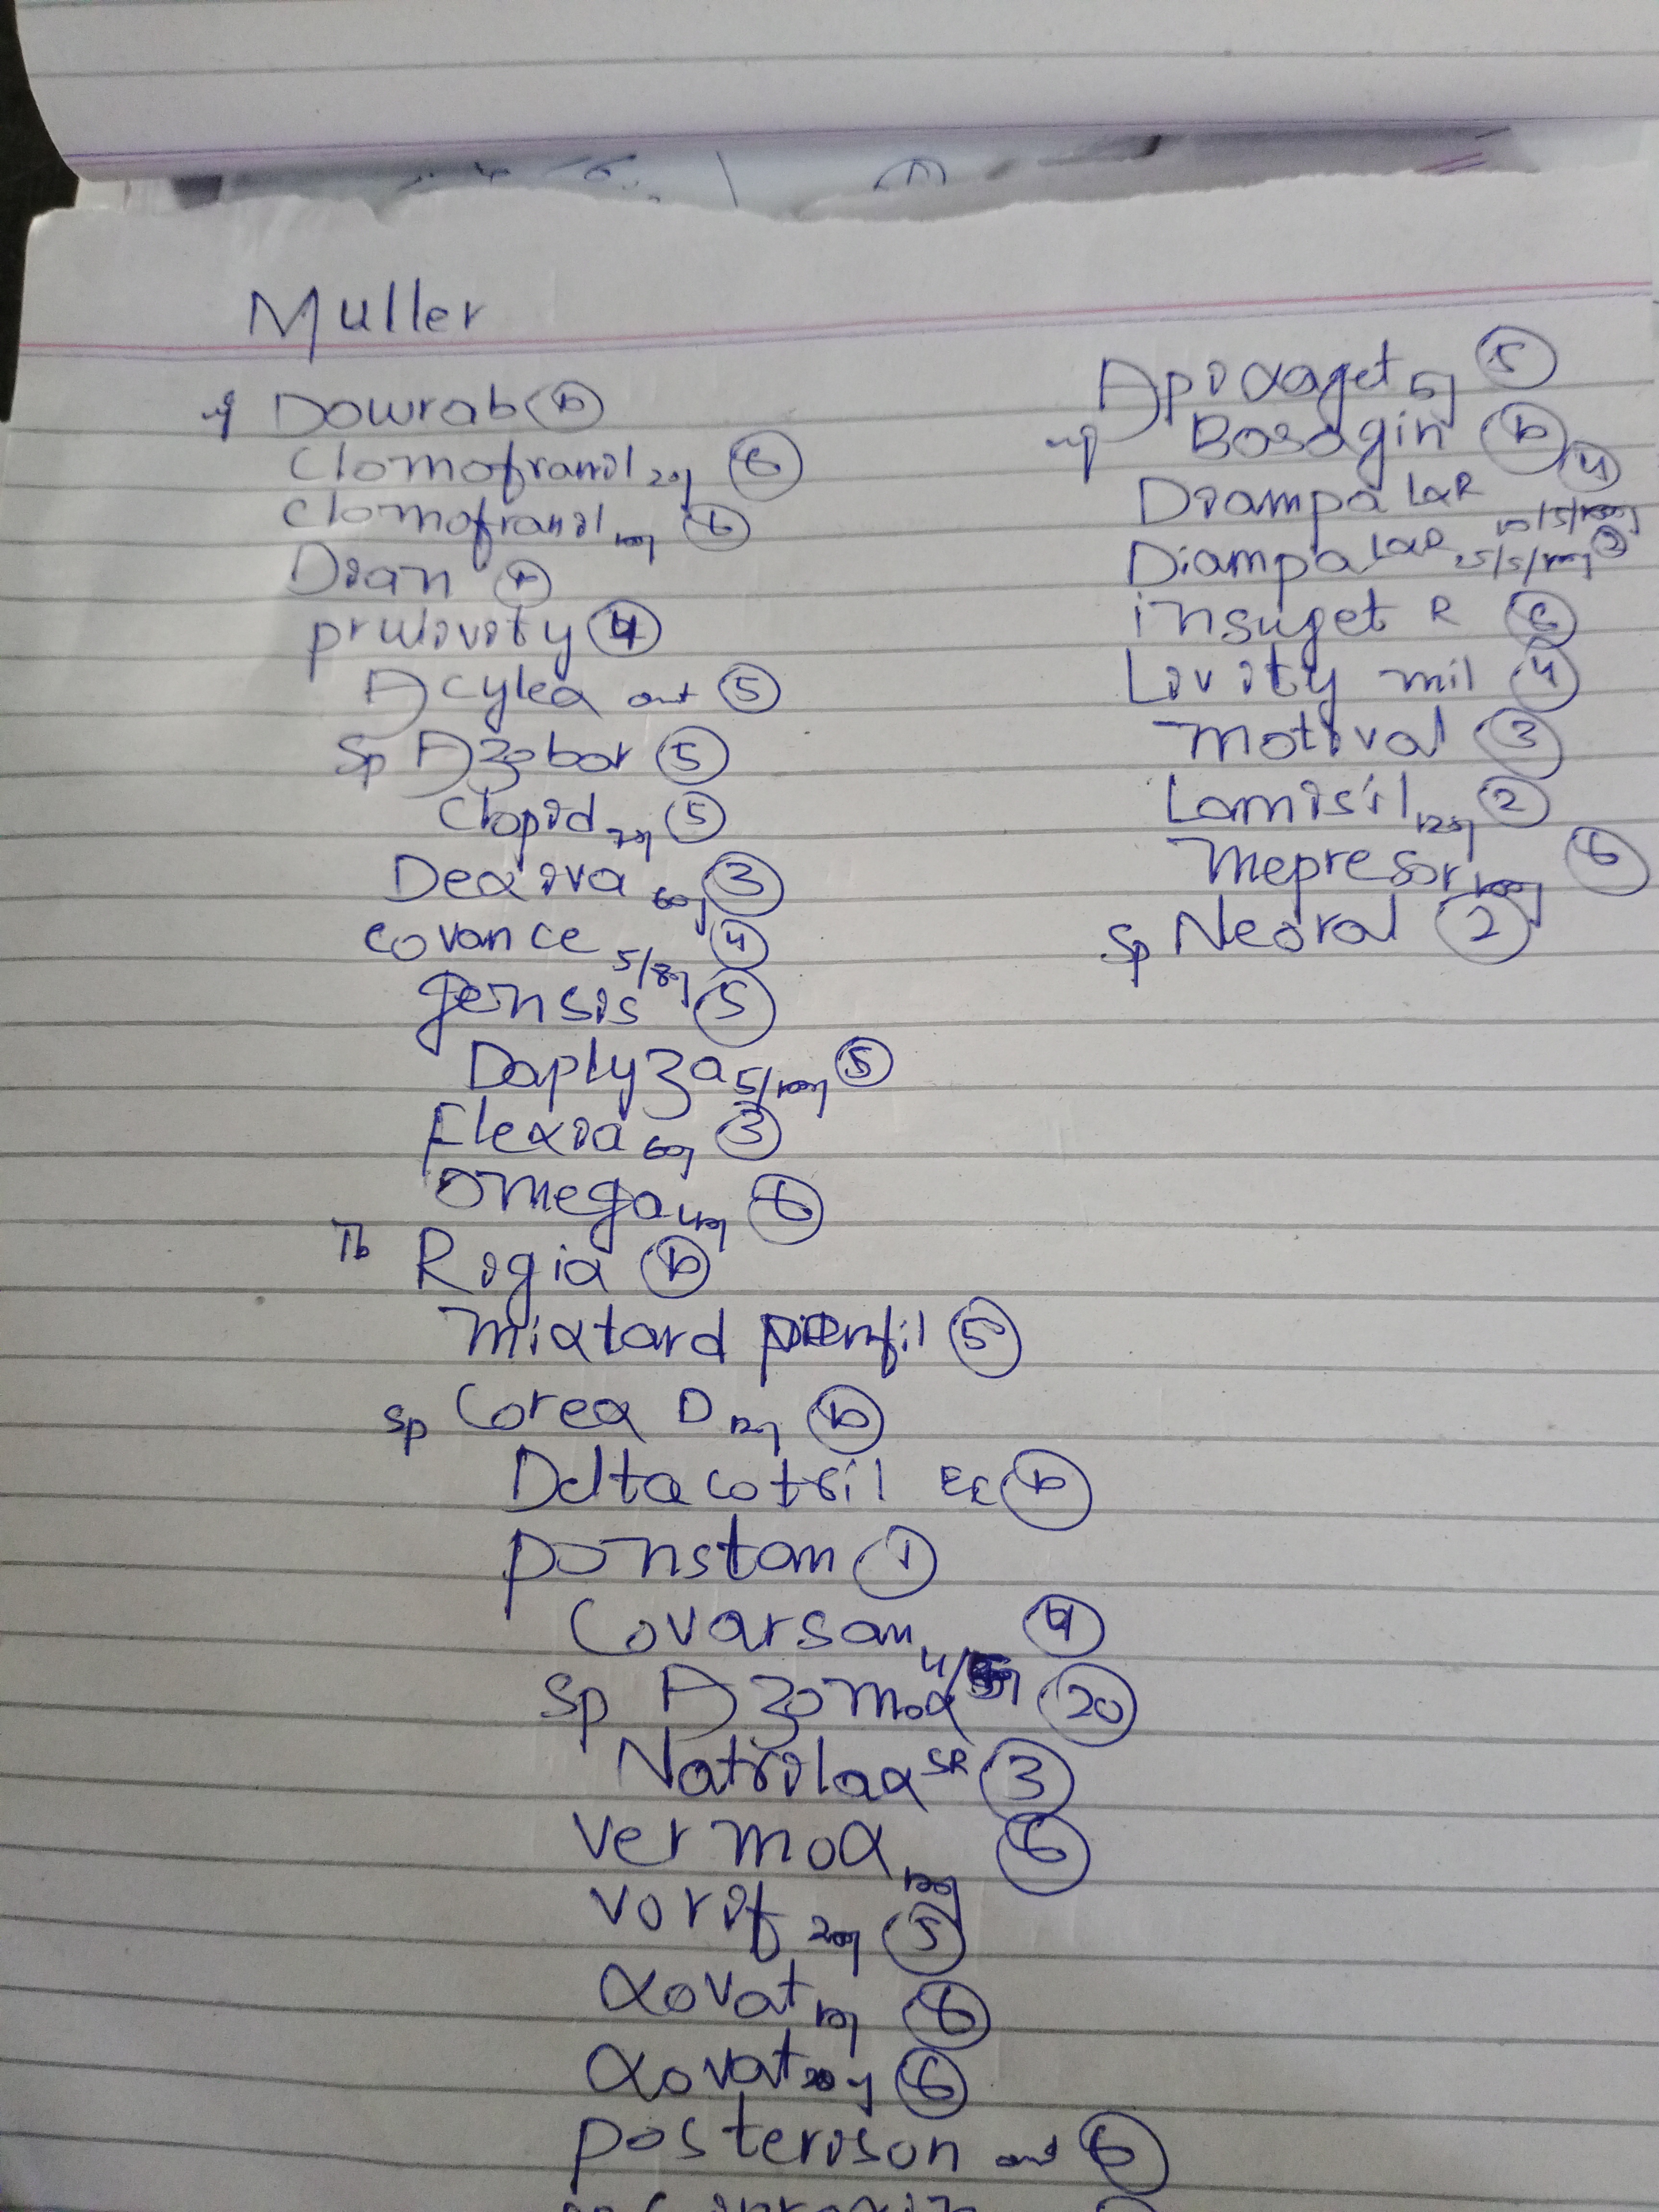 Muller
inj Dowrab 10
Clomofranil 25mg 6
Clomofranil 10mg 6
Dian 10
prulivity 4
Acylex oint 5
Sp Azobar 5
Clopid 75mg 5
Dexiva 60mg 3
covance 5/80mg 4
gensis 5
Daplyza 5/1000mg 5
Flexia 60mg 3
omega 40mg 6
Tb Rigia 10
mixtard penfil 5
Sp Corex D 120ml 10
Deltacotril EC 10
ponstan 1
Covarsam 4/5mg 4
Sp Azomax 20
Natrilax SR 3
vermox 6
vorif 200mg 5
xovat 10mg 6
xovat 20mg 6
posterison oint 6
Apixaget 5mg 5
inj Basagin 10
Diampa LXR 4
10/5/1000mg
Diampa LXR 25/5/1000mg 3
insuget R 6
Livity mil 4
motival 3
Lamisil 125mg 2
mepresor 100mg 6
Sp Neoral 2